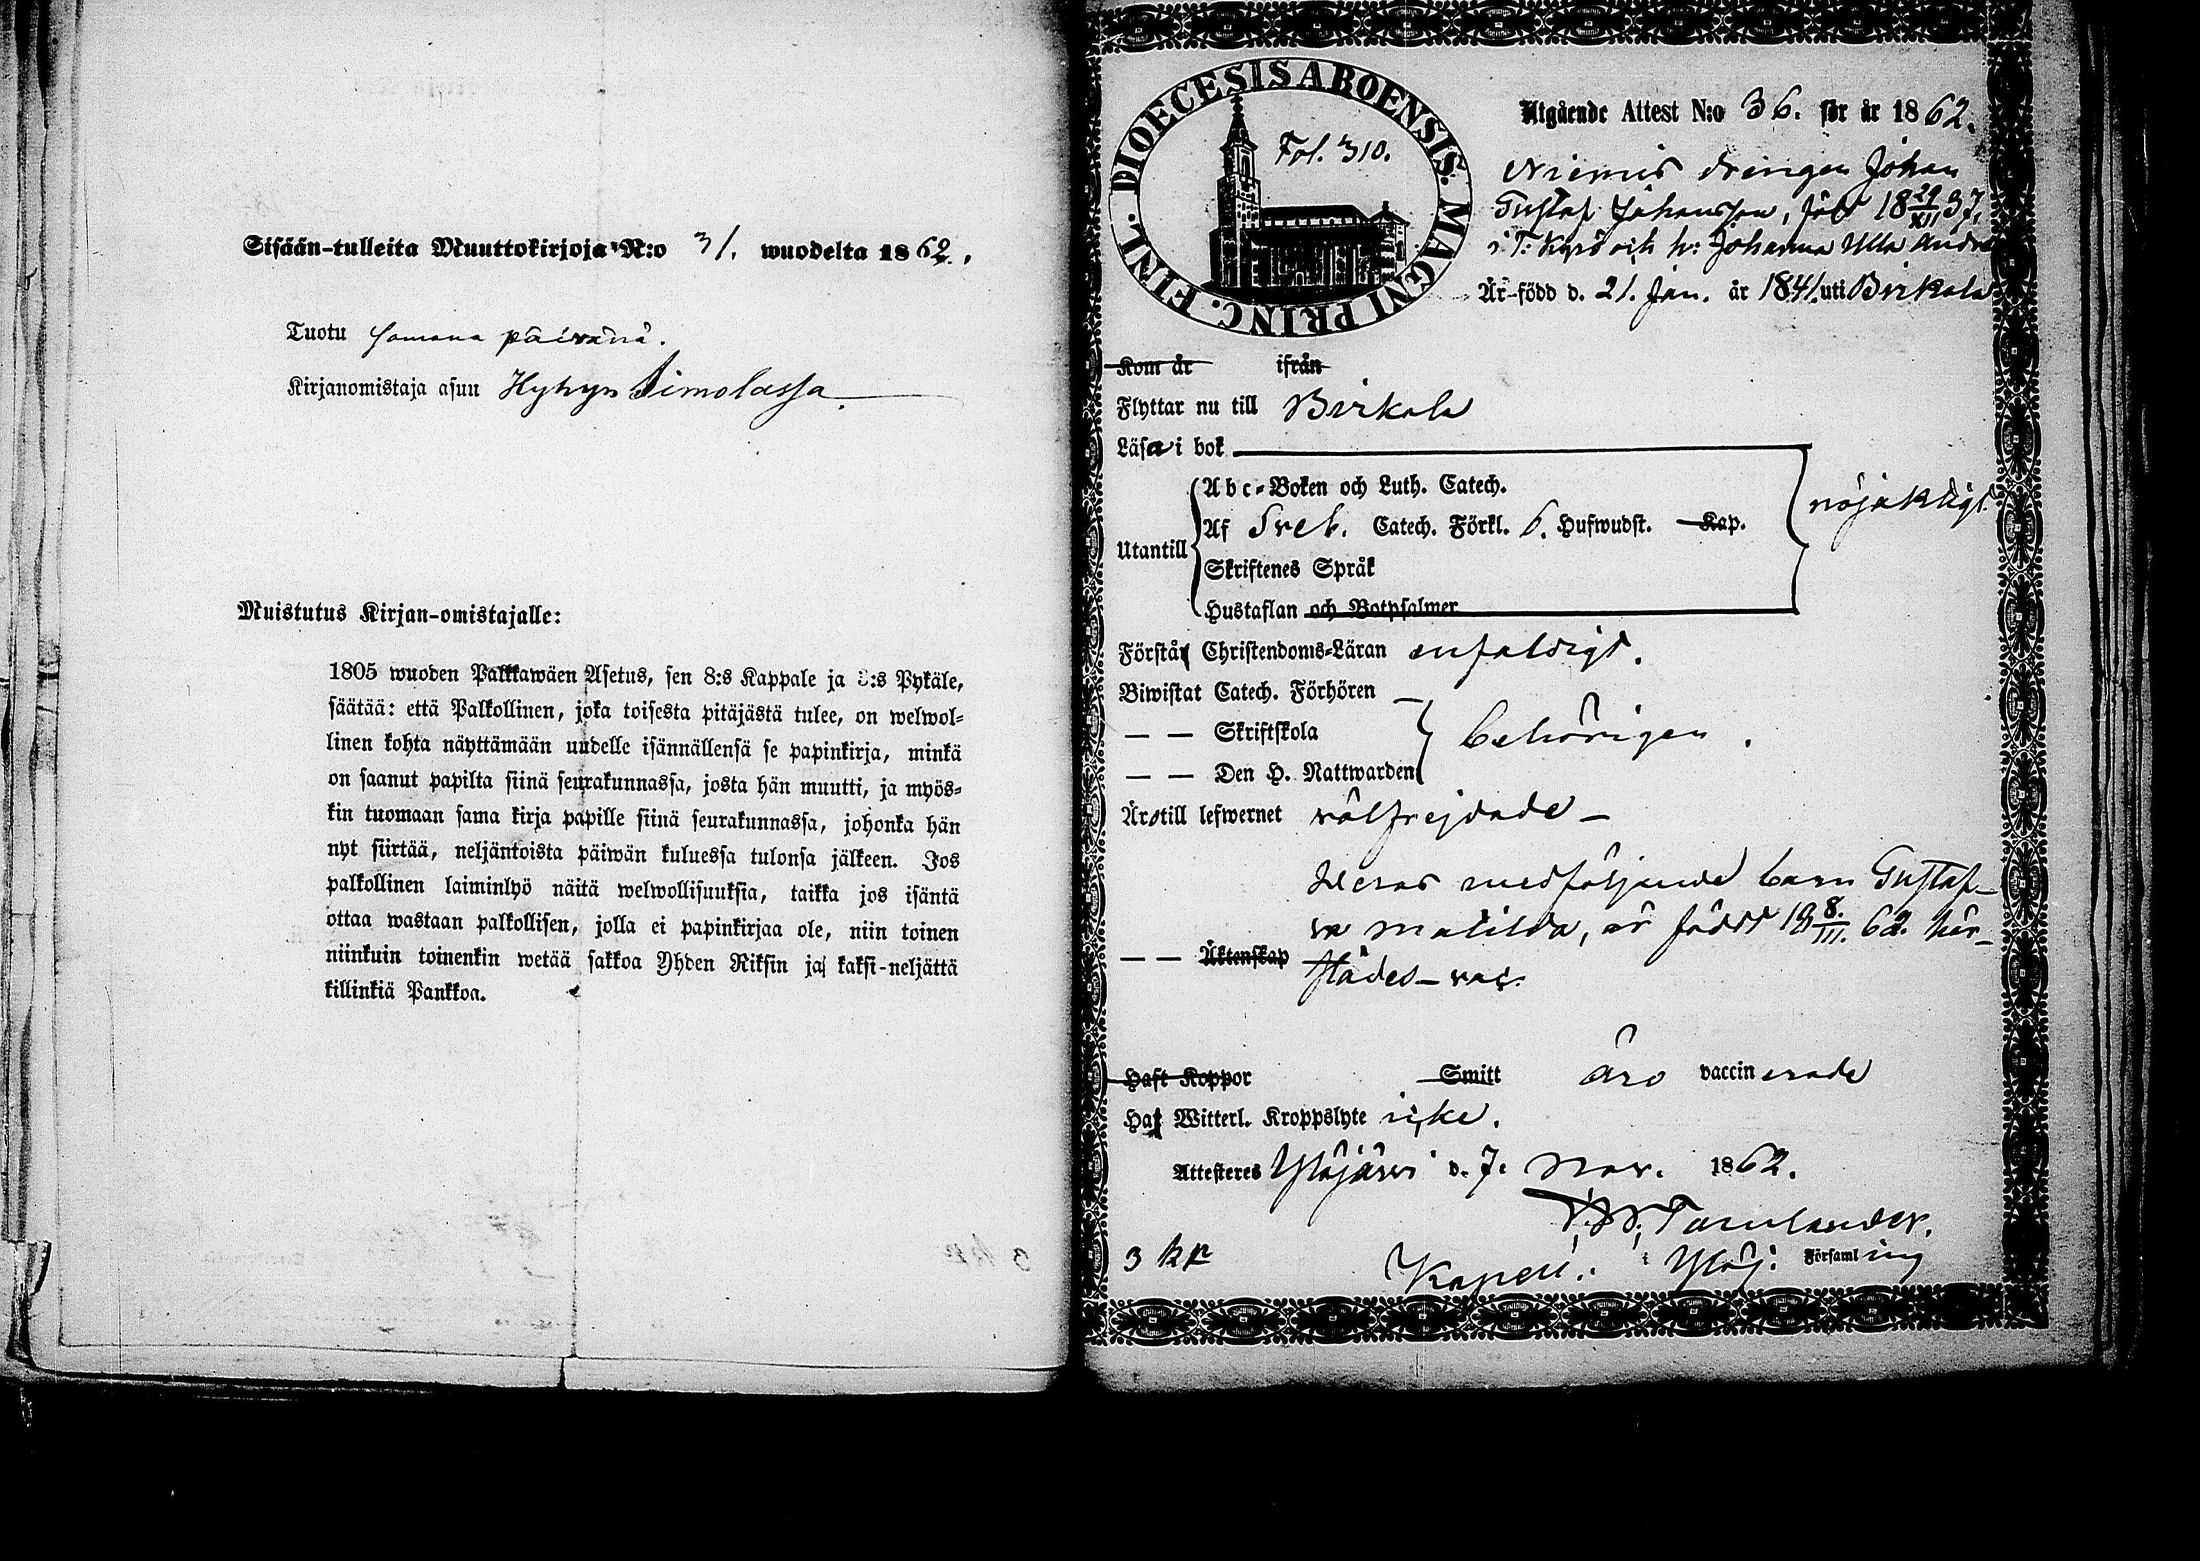 Sisään-tulleita Muuttokirjoja N:o 31. wuodelta 1862.
Tuotu samana päivänä.
Kirjanomistaja asuu Hyhyn Simolassa.
Muistutus Kirjan-omistajalle:
1805 wuoden Palkkawäen Asetus, sen 8:s Kappale ja 3:s Pykäle,
säätää: että Palkollinen, joka toisesta pitäjästä tulee, on welwol-
linen kohta näyttämään uudelle isännällensä se papinkirja, minkä
on saanut papilta siinä seurakunnassa, josta hän muutti, ja myös-
kin tuomaan sama kirja papille siinä seurakunnassa, johonka hän
nyt siirtää, neljäntoista päiwän kuluessa tulonsa jälkeen. Jos
palkollinen laiminlyö näitä welwollisuuksia, taikka jos isäntä
ottaa wastaan palkollisen, jolla ei papinkirjaa ole, niin toinen
niinkuin toinenkin wetää sakkoa Yhden Riksin ja kaksi-neljättä
killinkiä Pankkoa.
DIOECESIS ABOENSIS. MAGNI PRINC. FINL.
Fol. 310.
Utgående Attest N:o 36. för år 1862.
Niemis drengen Johan
Gustaf Johansson, född 18 29/XII 37,
i T: Kyrö och h: Johanna Ulla Andrs
Är född d. 21. Jan. år 1841. uti Birkala
Kom år ifrån
Flyttar nu till Birkala
Läsa i bok
Abc-Boken och Luth. Catech.
Utantill
Af Sveb. Catech. Förkl. 6. Hufwudst. Kap.
nöjaktigt
Skriftenes Språk
Hustaflan och Botpsalmer
Förstå Christendoms-Läran enfaldigt.
Biwistat Catech. Förhören
— — Skriftskola
behörigen.
— — Den H. Nattwarden
Äro till lefwernet välfrejdade —
Deras medföljande barn Gustaf-
va Matilda, är född 18 8./III. 62. här-
— — Äktenskap städes — vac.
Haft Koppor Smitt äro vaccinerade
Ha Witterl. Kroppslyte icke.
Attesteres Ylöjärvi d. 7. Nov. 1862.
3 kp
Kapell. i Ylöj: Församling